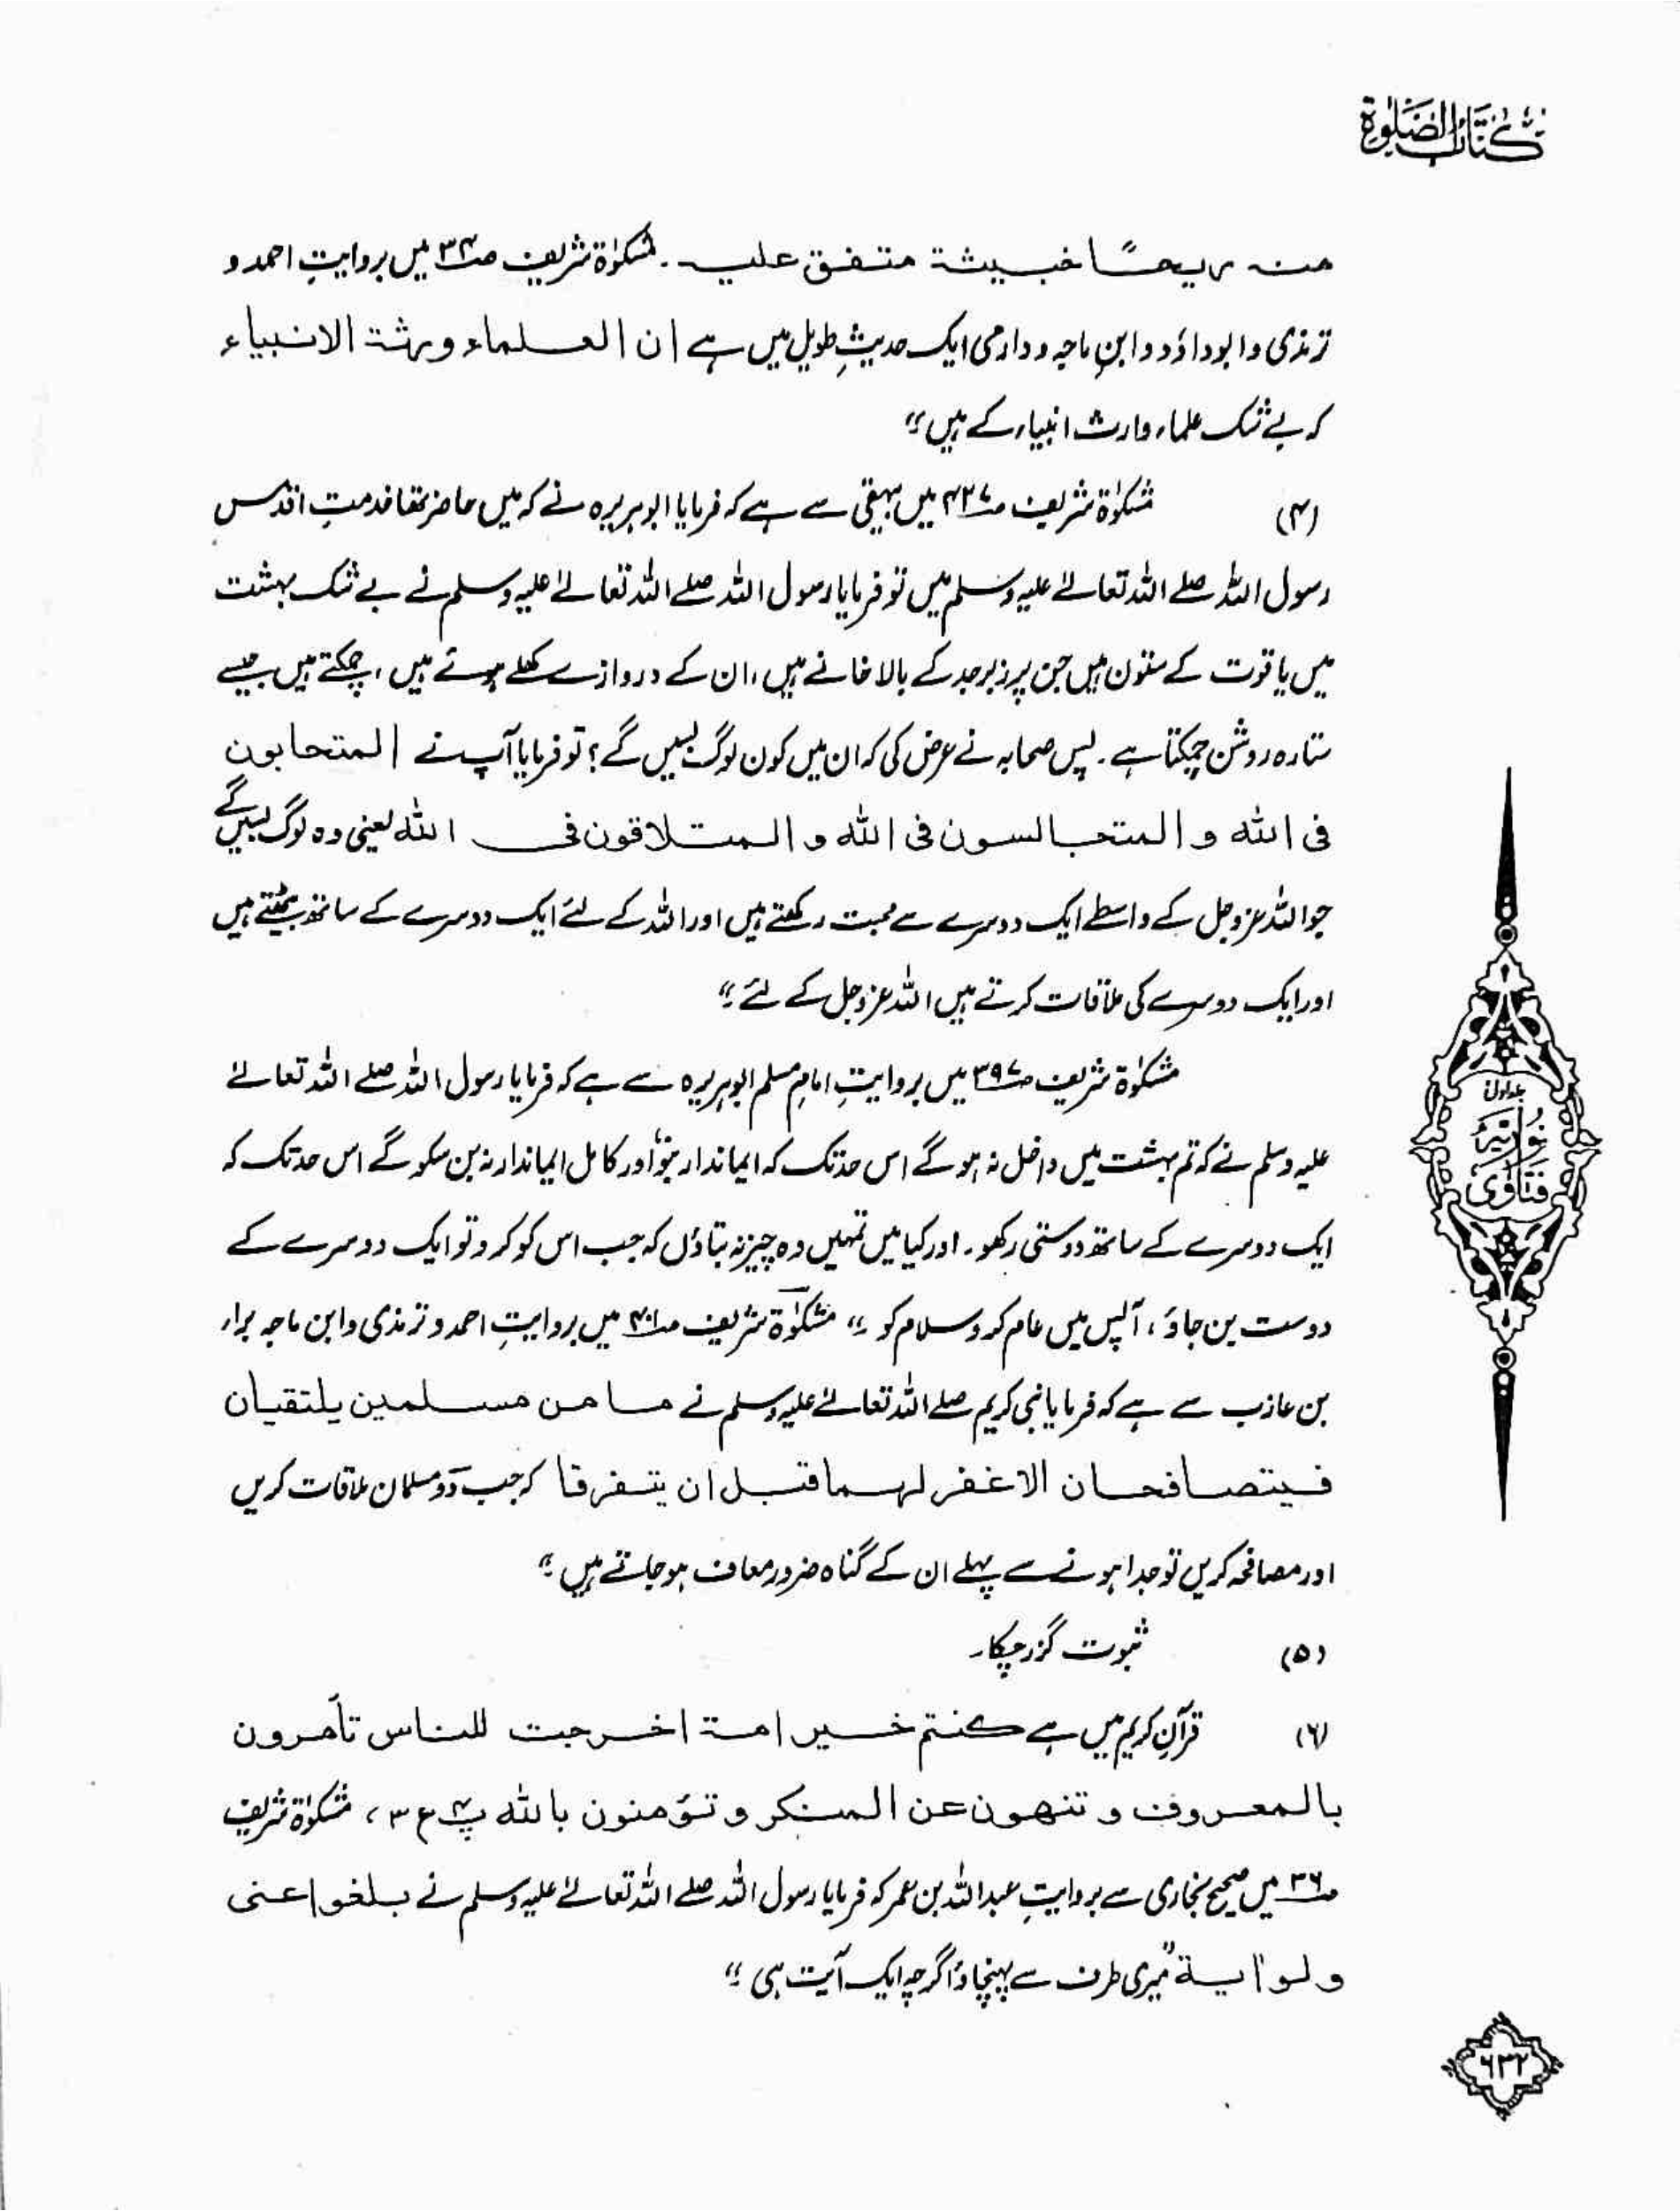 كتاب الصلوة
منه ريحًا خبيثة متفق عليه۔ مشکوٰۃ شریف ص۳۴ میں بروایتِ احمد و
ترمذی و ابوداؤد و ابنِ ماجہ و دارمی ایک حدیثِ طویل میں ہے ان العلماء ورثة الانبياء
کہ بے شک علماء وارث انبیاء کے ہیں"
(۴) مشکوٰۃ شریف ص۴۲۷ میں بیہقی سے ہے کہ فرمایا ابوہریرہ نے کہ میں حاضر تھا خدمتِ اقدس
رسول اللہ صلے اللہ تعالےٰ علیہ وسلم میں تو فرمایا رسول اللہ صلے اللہ تعالےٰ علیہ وسلم نے بے شک بہشت
میں یاقوت کے ستون ہیں جن پر زبرجد کے بالاخانے ہیں، ان کے دروازے کھلے ہوئے ہیں، چمکتے ہیں جیسے
ستارہ روشن چمکتا ہے۔ پس صحابہ نے عرض کی کہ ان میں کون لوگ بسیں گے؟ تو فرمایا آپ نے المتحابون
فى الله و المتجالسون فى الله و المتلاقون فى الله یعنی وہ لوگ بسیں گے
جو اللہ عزوجل کے واسطے ایک دوسرے سے محبت رکھتے ہیں اور اللہ کے لئے ایک دوسرے کے ساتھ بیٹھتے ہیں
اور ایک دوسرے کی ملاقات کرتے ہیں اللہ عزوجل کے لئے"
مشکوٰۃ شریف ص۳۹۷ میں بروایتِ امام مسلم ابوہریرہ سے ہے کہ فرمایا رسول اللہ صلے اللہ تعالےٰ
علیہ وسلم نے کہ تم بہشت میں داخل نہ ہو گے اس حد تک کہ ایماندار بنو اور کامل ایماندار نہ بن سکو گے اس حد تک کہ
ایک دوسرے کے ساتھ دوستی رکھو۔ اور کیا میں تمہیں وہ چیز نہ بتاؤں کہ جب اس کو کرو تو ایک دوسرے کے
دوست بن جاؤ، آپس میں عام کرو سلام کو" مشکوٰۃ شریف ص۴۰۱ میں بروایتِ احمد و ترمذی و ابن ماجہ براء
بن عازب سے ہے کہ فرمایا نبی کریم صلے اللہ تعالےٰ علیہ وسلم نے ما من مسلمين يلتقيان
فيتصافحان الا غفر لهما قبل ان يتفرقا کہ جب دو مسلمان ملاقات کریں
اور مصافحہ کریں تو جدا ہونے سے پہلے ان کے گناہ ضرور معاف ہو جاتے ہیں"
(۵) ثبوت گزر چکا۔
(۶) قرآنِ کریم میں ہے كنتم خير امة اخرجت للناس تأمرون
بالمعروف و تنهون عن المنكر و تؤمنون بالله پ۴ ع ۳، مشکوٰۃ شریف
ص۳۶ میں صحیح بخاری سے بروایتِ عبداللہ بن عمر کہ فرمایا رسول اللہ صلے اللہ تعالےٰ علیہ وسلم نے بلغوا عنى
ولو اٰية "میری طرف سے پہنچاؤ اگرچہ ایک آیت ہی"
جلد اول
نوریہ
فتاوٰی
۶۳۲